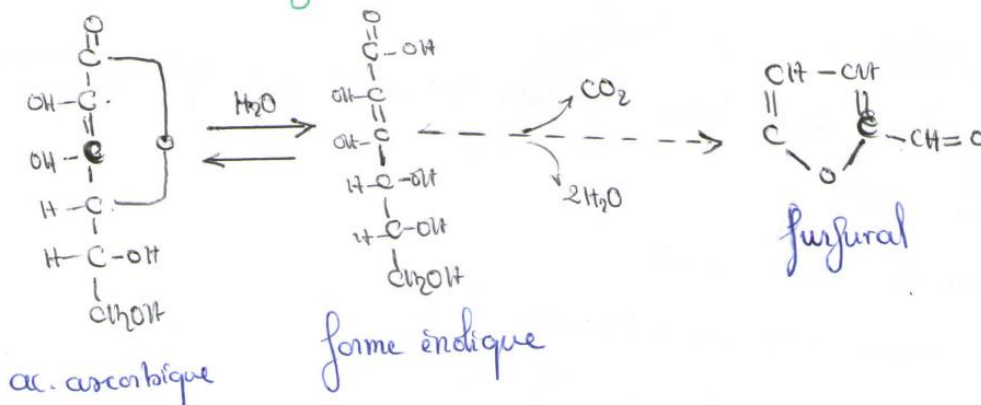 O
C
OH-C
OH-C
H-C
H-C-OH
CH2OH
O
ac. ascorbique
H2O
O
C-OH
OH-C
OH-C
H-C-OH
H-C-OH
CH2OH
forme énolique
CO2
2H2O
CH-CH
C
C-CH=O
O
furfural